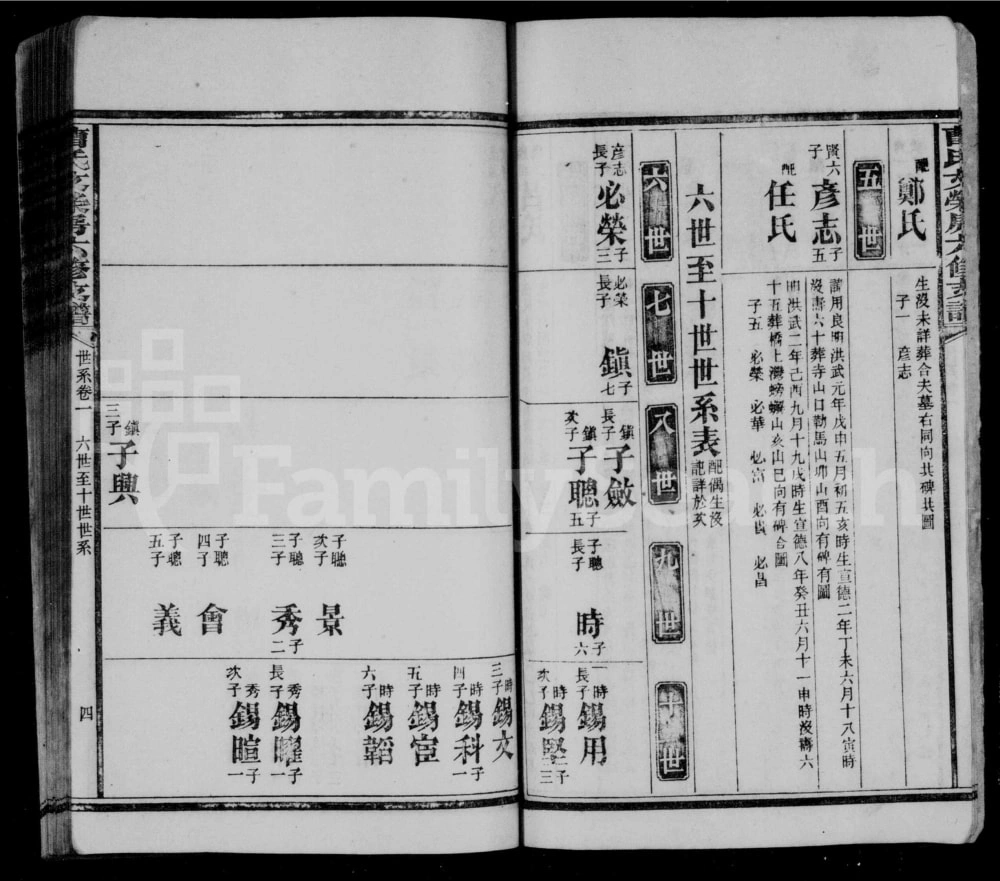 配 鄭氏
生沒未詳葬合夫墓右同向共碑共圖
子一 彥志
五世
賢六子 彥志 子五
諱用良明洪武元年戊申五月初五亥時生宣德二年丁未六月十八寅時
沒壽六十葬寺山口勒馬山卯山酉向有碑有圖
配 任氏
明洪武二年己酉九月十九戌時生宣德八年癸丑六月十一申時沒壽六
十五葬橋上灣螃蠏山亥山巳向有碑合圖
子五 必榮 必華 必富 必昌
六世至十世世系表 配偶生沒記詳於次
六世
七世
八世
九世
十世
彥志長子 必榮 子三
必榮長子 鎮 子七
鎮長子 子斂
鎮次子 子聰 子五
子聰長子 時 子六
時長子 錫用 子一
時次子 錫堅 子三
時三子 錫文
時四子 錫科 子一
時五子 錫宦
時六子 錫韜
子聰次子 景
子聰三子 秀 子二
秀長子 錫曜 子一
秀次子 錫暄 子一
子聰四子 會
子聰五子 義
鎮三子 子興
曹氏文榮房六修支譜
世系卷一 六世至十世世系
四
FamilySearch